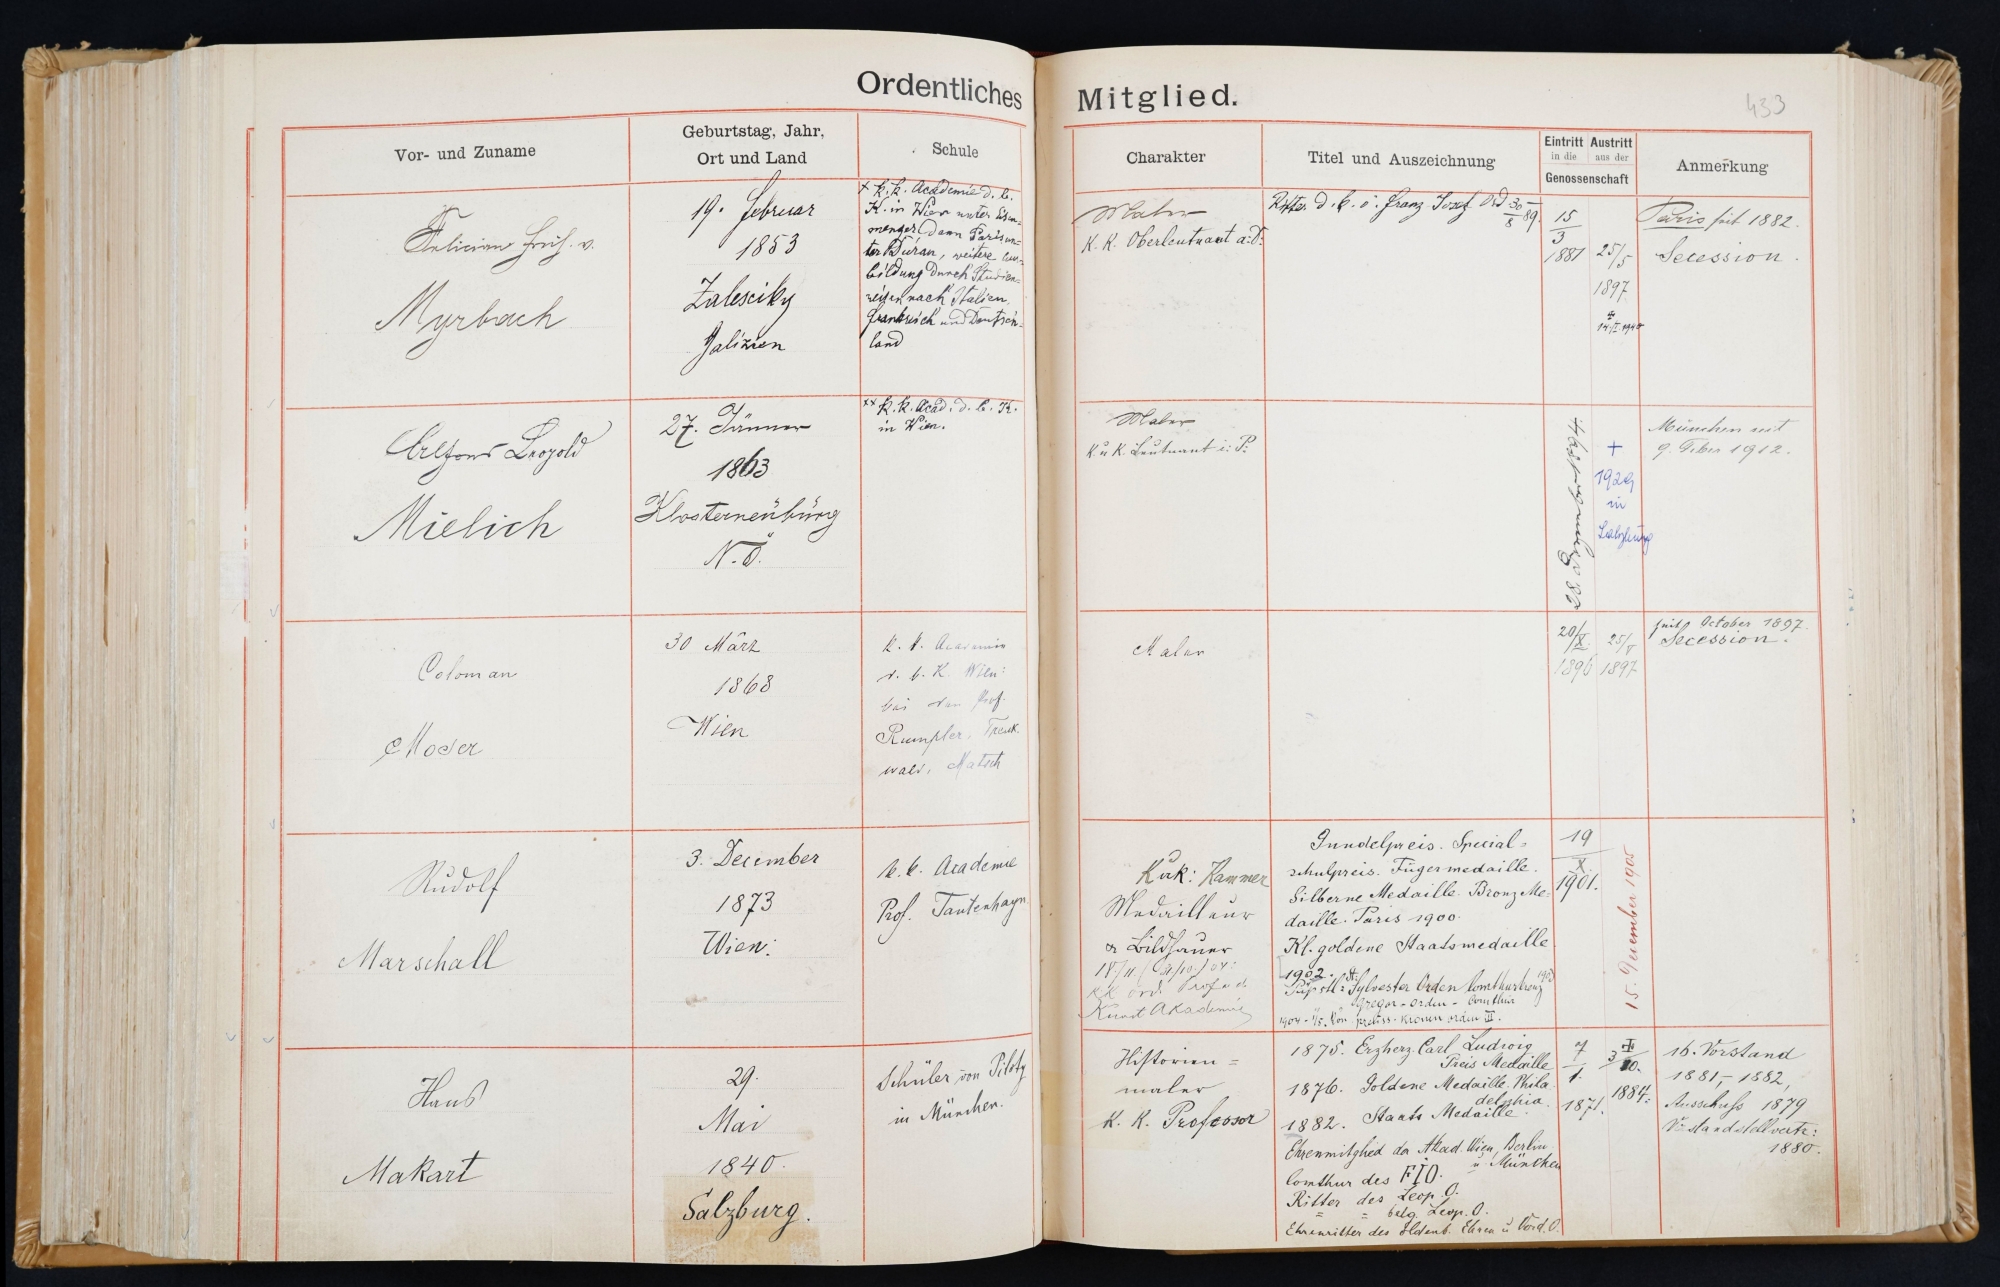 Ordentliches Mitglied.
433
Vor- und Zuname
Geburtstag, Jahr,
Ort und Land
Schule
Charakter
Titel und Auszeichnung
Eintritt Austritt
in die aus der
Genossenschaft
Anmerkung
Felician Frh. v.
Myrbach
19. Februar
1853
Zalesciky
Galizien
* k. k. Academie d. b.
K. in Wien unter Eisen-
menger (dann Paris un-
ter Duran, weitere Aus-
bildung durch Studien-
reisen nach Italien,
Frankreich und Deutsch-
land
Maler
K. K. Oberleutnant a: D:
Ritter d. k. ö. Franz Josef Ord 30/X 89.
15
3
1881
25/5
1897
14.I.1940
Paris seit 1882.
Secession.
Alfons Leopold
Mielich
27. Jänner
1863
Klosterneuburg
N. Ö.
** k. k. Acad. d. b. K.
in Wien.
Maler
k. u. k. Leutnant i: P:
28 Dezember 1894
+
1929
in
Salzburg
München seit
9. Feber 1912.
Coloman
Moser
30 März
1868
Wien
k. k. Academie
d. b. K. Wien:
bei den Prof.
Rumpler, Trenk
wald, Matsch
Maler
20/X
1896
25/V
1897
seit October 1897.
Secession.
Rudolf
Marschall
3. December
1873
Wien.
k. k. Academie
Prof. Tautenhayn
K. u. k: Kammer
Medailleur
& Bildhauer
KK ord. Prof a. d.
Kunst Akademie
Gundelpreis. Special-
schulpreis. Fügermedaille.
Silberne Medaille. Bronz Me-
daille. Paris 1900.
Kl. goldene Staatsmedaille
1902.
Päpstl: St: Sylvester Orden Comthurkreuz
Gregor-Orden-Comthur
1904 - Kön. preuss. Kronen orden III.
19
X
1901.
15. Dezember 1905
Hans
Makart
29.
Mai
1840.
Salzburg.
Schüler von Piloty
in München.
Historien=
maler
K. K. Professor
1875. Erzherz. Carl Ludwig
Preis Medaille
1876. Goldene Medaille. Phila
delphia.
1882. Staats Medaille.
Ehrenmitglied der Akad. Wien, Berlin
u. München
Comthur des FJO.
Ritter des Leop. O.
" " belg. Leop. O.
Ehrenritter des Oldenb. Ehren u Verd. O.
7
1.
1871.
3/10.
1884.
16. Vorstand
1881,- 1882,
Ausschuss 1879
Vorstandstellvertr:
1880.